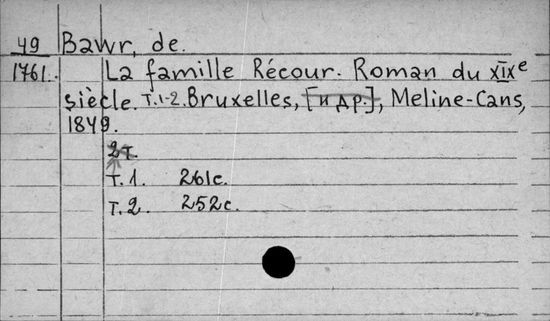 49 Bawr, de.
1761. La famille Récour. Roman du XIXe
siècle. Т.1-2. Bruxelles, [и др.], Meline-Cans,
1849.
2т.
Т.1. 261с.
Т.2. 252с.